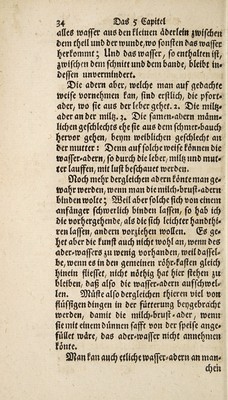 34 Das 5 Capitel
alles wasser aus den kleinen äderlein zwischen
dem theil und der wunde, wo sonsten das wasser
herkommt; Und das wasser, so enthalten ist,
zwischen dem schnitt und dem bande, bleibt in-
dessen unvermindert.
Die adern aber, welche man auf gedachte
weise vornehmen kan, sind erstlich, die pfort-
ader, wo sie aus der leber gehet. 2. Die miltz-
ader an der miltz. 3. Die samen-adern männ-
lichen geschlechts ehe sie aus dem schmer-bauch
hervor gehen, beym weiblichen geschlecht an
der mutter: Denn auf solche weise können die
wasser-adern, so durch die leber, miltz und mut-
ter lauffen, mit lust beschauet werden.
Noch mehr dergleichen adern könte man ge-
wahr werden, wenn man die milch-brust-adern
binden wolte; Weil aber solche sich von einem
anfänger schwerlich binden lassen, so hab ich
die vorhergehende, als die sich leichter handthi-
ren lassen, andern vorziehen wollen. Es ge-
het aber die kunst auch nicht wohl an, wenn des
ader-wassers zu wenig vorhanden, weil dassel-
be, wenn es in den gemeinen röhr-kasten gleich
hinein fliesset, nicht nöthig hat hier stehen zu
bleiben, daß also die wasser-adern aufschwel-
len. Müste also dergleichen thieren viel von
flüssigen dingen in der fütterung beygebracht
werden, damit die milch-brust-ader, wenn
sie mit einem dünnen safft von der speise ange-
füllet wäre, das ader-wasser nicht annehmen
könte.
Man kan auch etliche wasser-adern an man-
chen